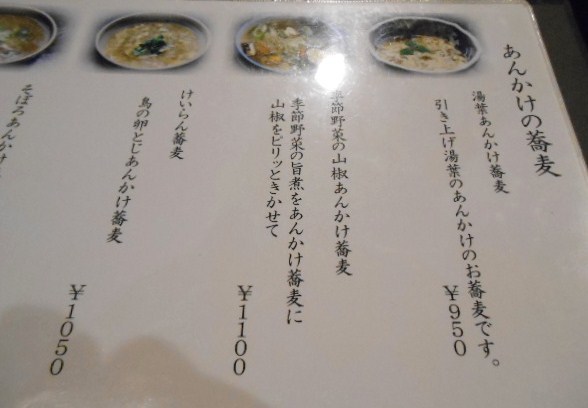 あんかけの蕎麦
湯葉あんかけ蕎麦
引き上げ湯葉のあんかけのお蕎麦です。
¥950
季節野菜の山椒あんかけ蕎麦
季節野菜の旨煮をあんかけ蕎麦に
山椒をピリッときかせて
¥1100
けいらん蕎麦
鳥の卵とじあんかけ蕎麦
¥1050
そぼろあんかけ